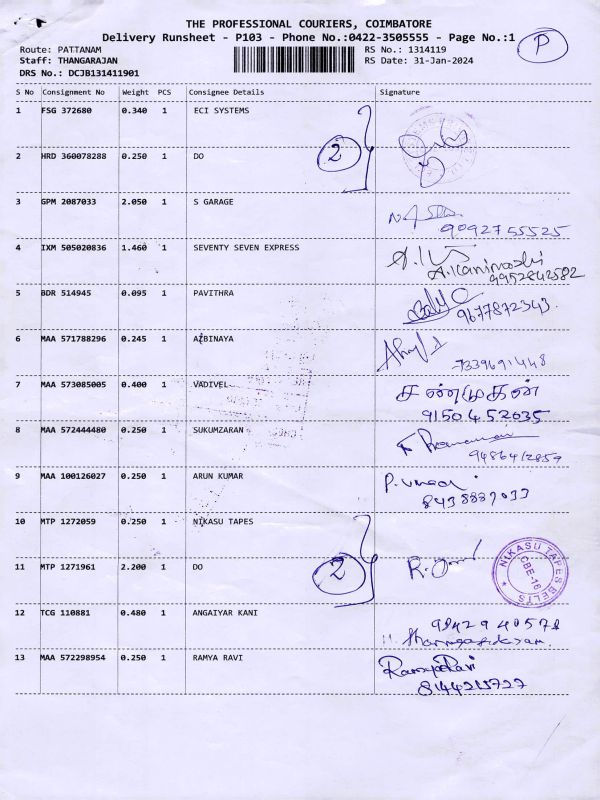 THE PROFESSIONAL COURIERS, COIMBATORE
Delivery Runsheet - P103 - Phone No.:0422-3505555 - Page No.:1
P
Route: PATTANAM RS No.: 1314119
Staff: THANGARAJAN RS Date: 31-Jan-2024
DRS No.: DCJB131411901
S No Consignment No Weight PCS Consignee Details Signature
1 FSG 372680 0.340 1 ECI SYSTEMS
2
2 HRD 360078288 0.250 1 DO
3 GPM 2087033 2.050 1 S GARAGE
9092755525
4 IXM 505020836 1.460 1 SEVENTY SEVEN EXPRESS
A.Kanimozhi
9952842582
5 BDR 514945 0.095 1 PAVITHRA
9677872343
6 MAA 571788296 0.245 1 AZBINAYA
7339691448
7 MAA 573085005 0.400 1 VADIVEL
சண்முகன்
9150452035
8 MAA 572444480 0.250 1 SUKUMZARAN
9486412859
9 MAA 100126027 0.250 1 ARUN KUMAR
8438889033
10 MTP 1272059 0.250 1 NIKASU TAPES
2
11 MTP 1271961 2.200 1 DO
NIKASU TAPES BELTS
CBE-16
12 TCG 110881 0.480 1 ANGAIYAR KANI
9842940578
13 MAA 572298954 0.250 1 RAMYA RAVI
RamyaRavi
8144215727